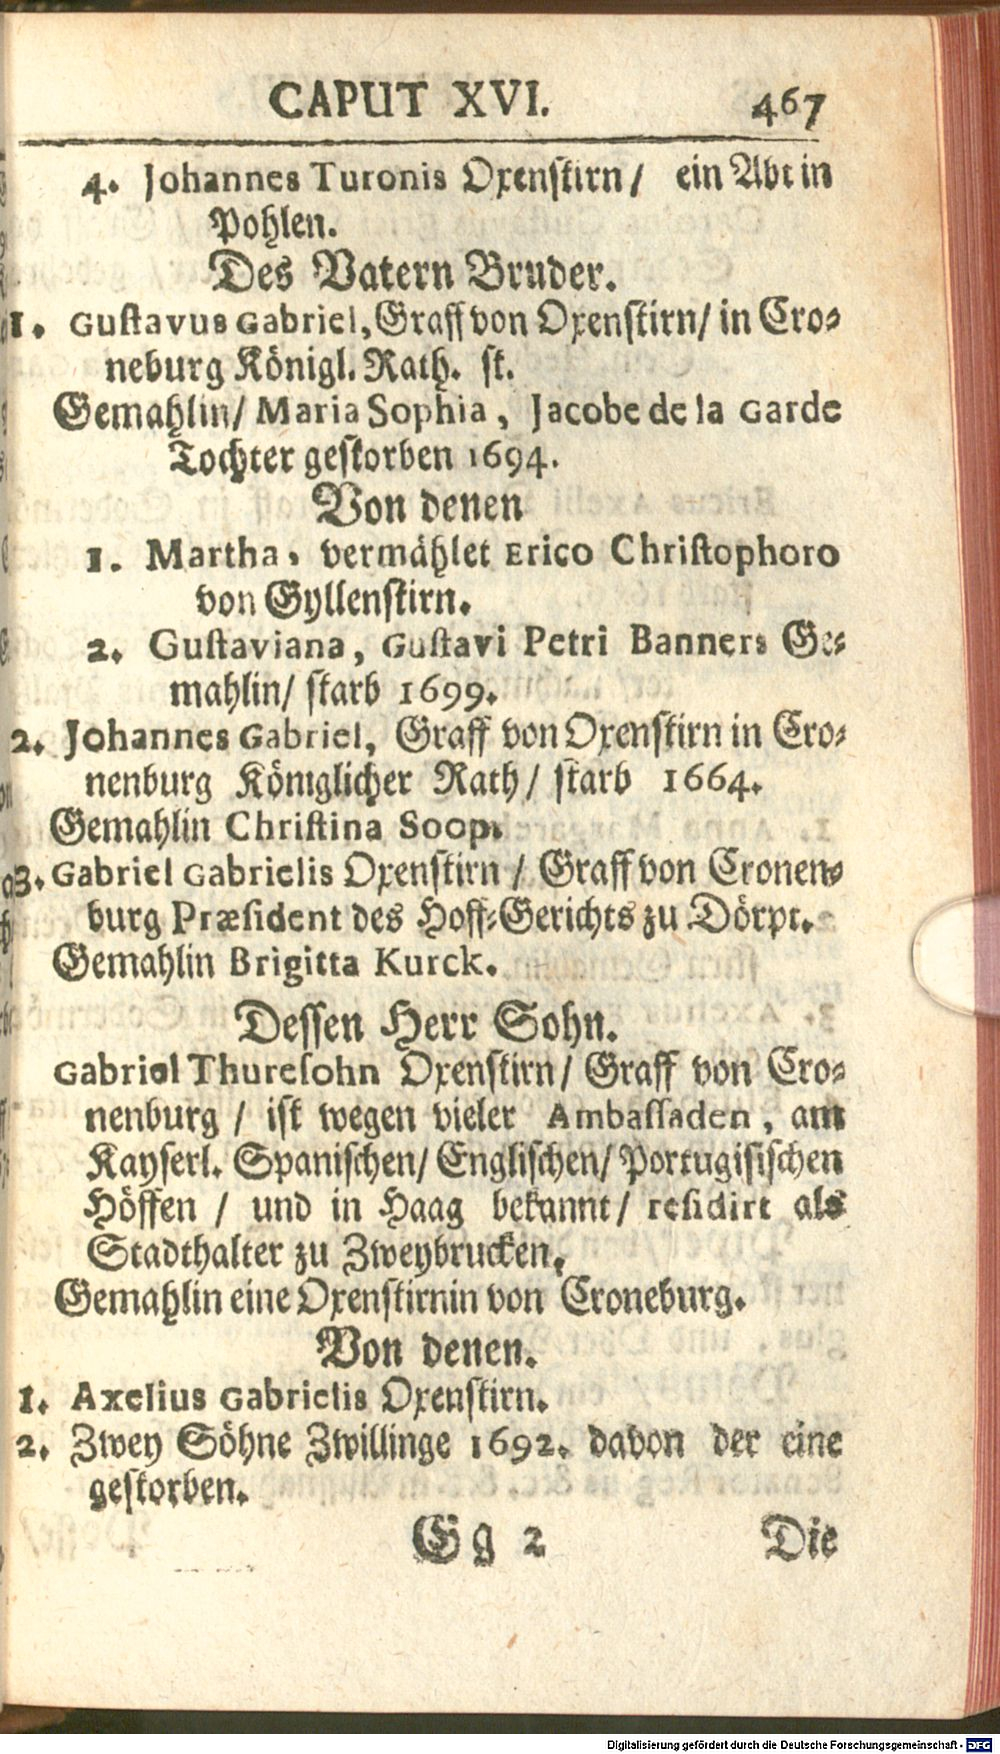 CAPUT XVI. 467
4. Johannes Turonis Oxenstirn/ ein Abt in
Pohlen.
Des Vatern Bruder.
1. Gustavus Gabriel, Graff von Oxenstirn/ in Cro-
neburg Königl. Rath. st.
Gemahlin/ Maria Sophia, Jacobe de la Garde
Tochter gestorben 1694.
Von denen
1. Martha, vermählet Erico Christophoro
von Gyllenstirn.
2. Gustaviana, Gustavi Petri Banners Ge-
mahlin/ starb 1699.
2. Johannes Gabriel, Graff von Oxenstirn in Cro-
nenburg Königlicher Rath/ starb 1664.
Gemahlin Christina Soop.
3. Gabriel Gabrielis Oxenstirn / Graff von Cronen-
burg Præsident des Hoff-Gerichts zu Dörpt.
Gemahlin Brigitta Kurck.
Dessen Herr Sohn.
Gabriel Thuresohn Oxenstirn/ Graff von Cro-
nenburg / ist wegen vieler Ambassaden, am
Kayserl. Spanischen/ Englischen/ Portugisischen
Höffen / und in Haag bekannt/ residirt als
Stadthalter zu Zweybrucken.
Gemahlin eine Oxenstirnin von Croneburg.
Von denen.
1. Axelius Gabrielis Oxenstirn.
2. Zwey Söhne Zwillinge 1692. davon der eine
gestorben.
Gg 2 Die
Digitalisierung gefördert durch die Deutsche Forschungsgemeinschaft - DFG